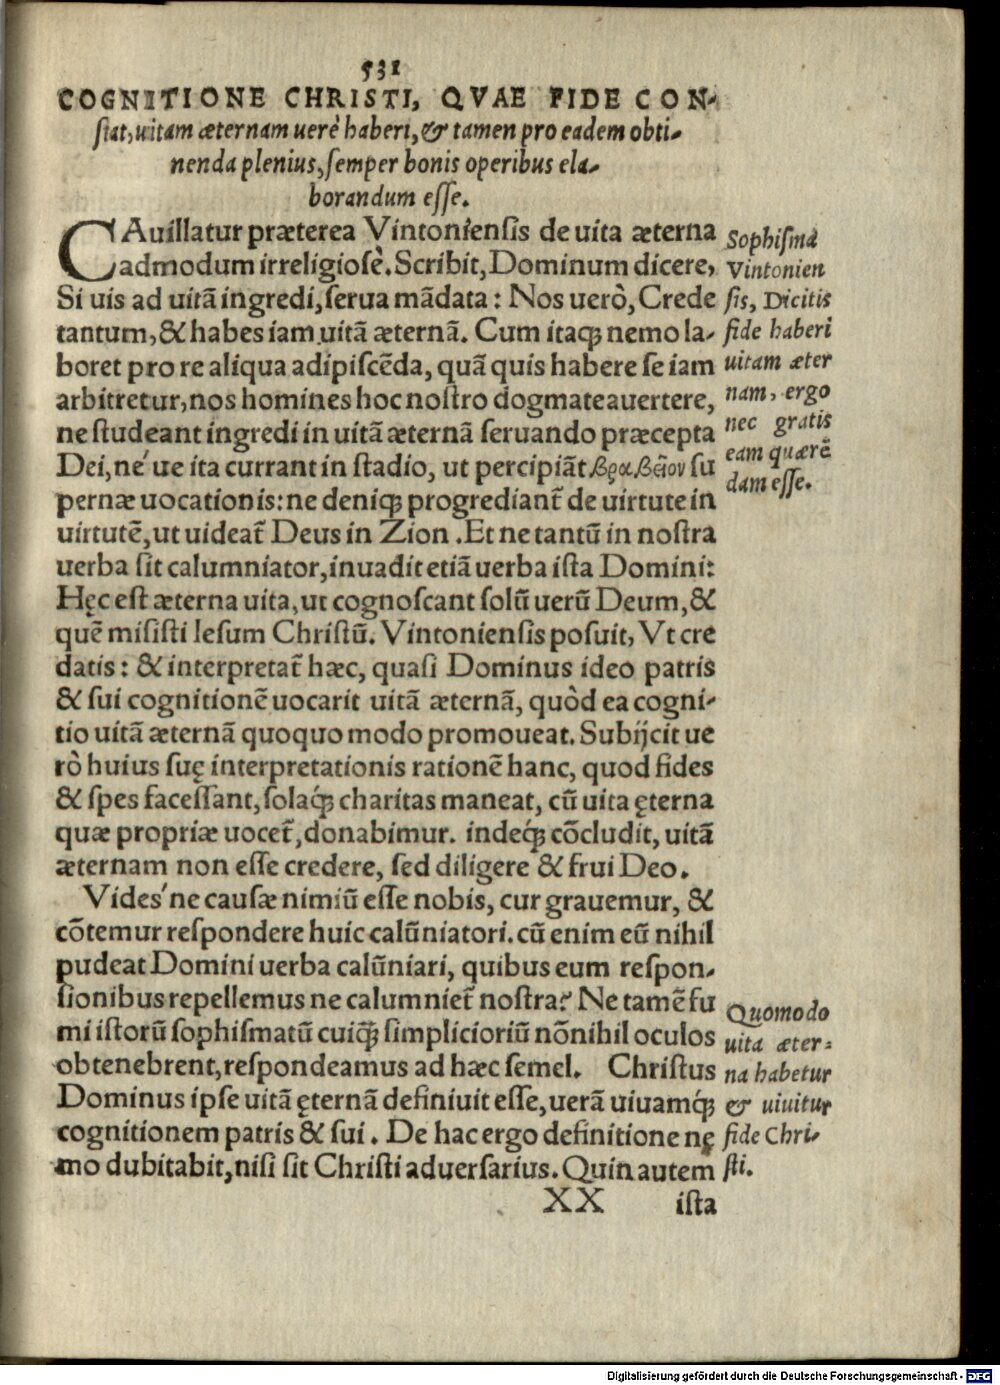 531
COGNITIONE CHRISTI, QVAE FIDE CON-
stat, uitam æternam uerè haberi, & tamen pro eadem obti-
nenda plenius, semper bonis operibus ela-
borandum esse.
CAuillatur præterea Vintoniensis de uita æterna
admodum irreligiosè. Scribit, Dominum dicere,
Si uis ad uitā ingredi, serua mādata: Nos uerò, Crede
tantum, & habes iam uitā æternā. Cum itaq; nemo la-
boret pro re aliqua adipiscēda, quā quis habere se iam
arbitretur, nos homines hoc nostro dogmate auertere,
ne studeant ingredi in uitā æternā seruando præcepta
Dei, né ue ita currant in stadio, ut percipiāt βραβεῖον su
pernæ uocationis: ne deniq; progrediant̃ de uirtute in
uirtutē, ut uideat̃ Deus in Zion. Et ne tantũ in nostra
uerba sit calumniator, inuadit etiā uerba ista Domini:
Hęc est æterna uita, ut cognoscant solũ uerũ Deum, &
quē misisti Iesum Christũ. Vintoniensis posuit, Vt cre
datis: & interpretat̃ hæc, quasi Dominus ideo patris
& sui cognitionē uocarit uitā æternā, quòd ea cogni-
tio uitā æternā quoquo modo promoueat. Subijcit ue
rò huius suę interpretationis rationē hanc, quod fides
& spes facessant, solaq́; charitas maneat, cũ uita ęterna
quæ propriæ uocet̃, donabimur. indeq́; cōcludit, uitā
æternam non esse credere, sed diligere & frui Deo.
Vides ́ne causæ nimiũ esse nobis, cur grauemur, &
cōtemur respondere huic calũniatori. cũ enim eũ nihil
pudeat Domini uerba calũniari, quibus eum respon-
sionibus repellemus ne calumniet̃ nostra? Ne tamē fu
mi istorũ sophismatũ cuiq́; simpliciorũ nōnihil oculos
obtenebrent, respondeamus ad hæc semel. Christus
Dominus ipse uitā ęternā definiuit esse, uerā uiuamq́;
cognitionem patris & sui. De hac ergo definitione nę
mo dubitabit, nisi sit Christi aduersarius. Quin autem
XX ista
Sophisma
Vintonien
sis, Dicitis
fide haberi
uitam æter
nam, ergo
nec gratis
eam quærē
dam esse.
Quomodo
uita æter-
na habetur
& uiuitur
fide Chri-
sti.
Digitalisierung gefördert durch die Deutsche Forschungsgemeinschaft - DFG